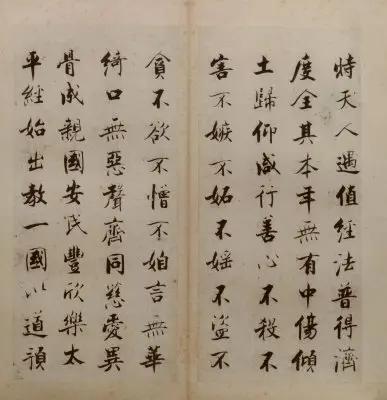 時天人遇值經法普得濟
度全其本年無有中傷傾
土歸仰咸行善心不殺不
害不嫉不妬不婬不盜不
貪不欲不憎不妲言無華
綺口無惡聲齊同慈愛異
骨成親國安民豐欣樂太
平經始出教一國以道預